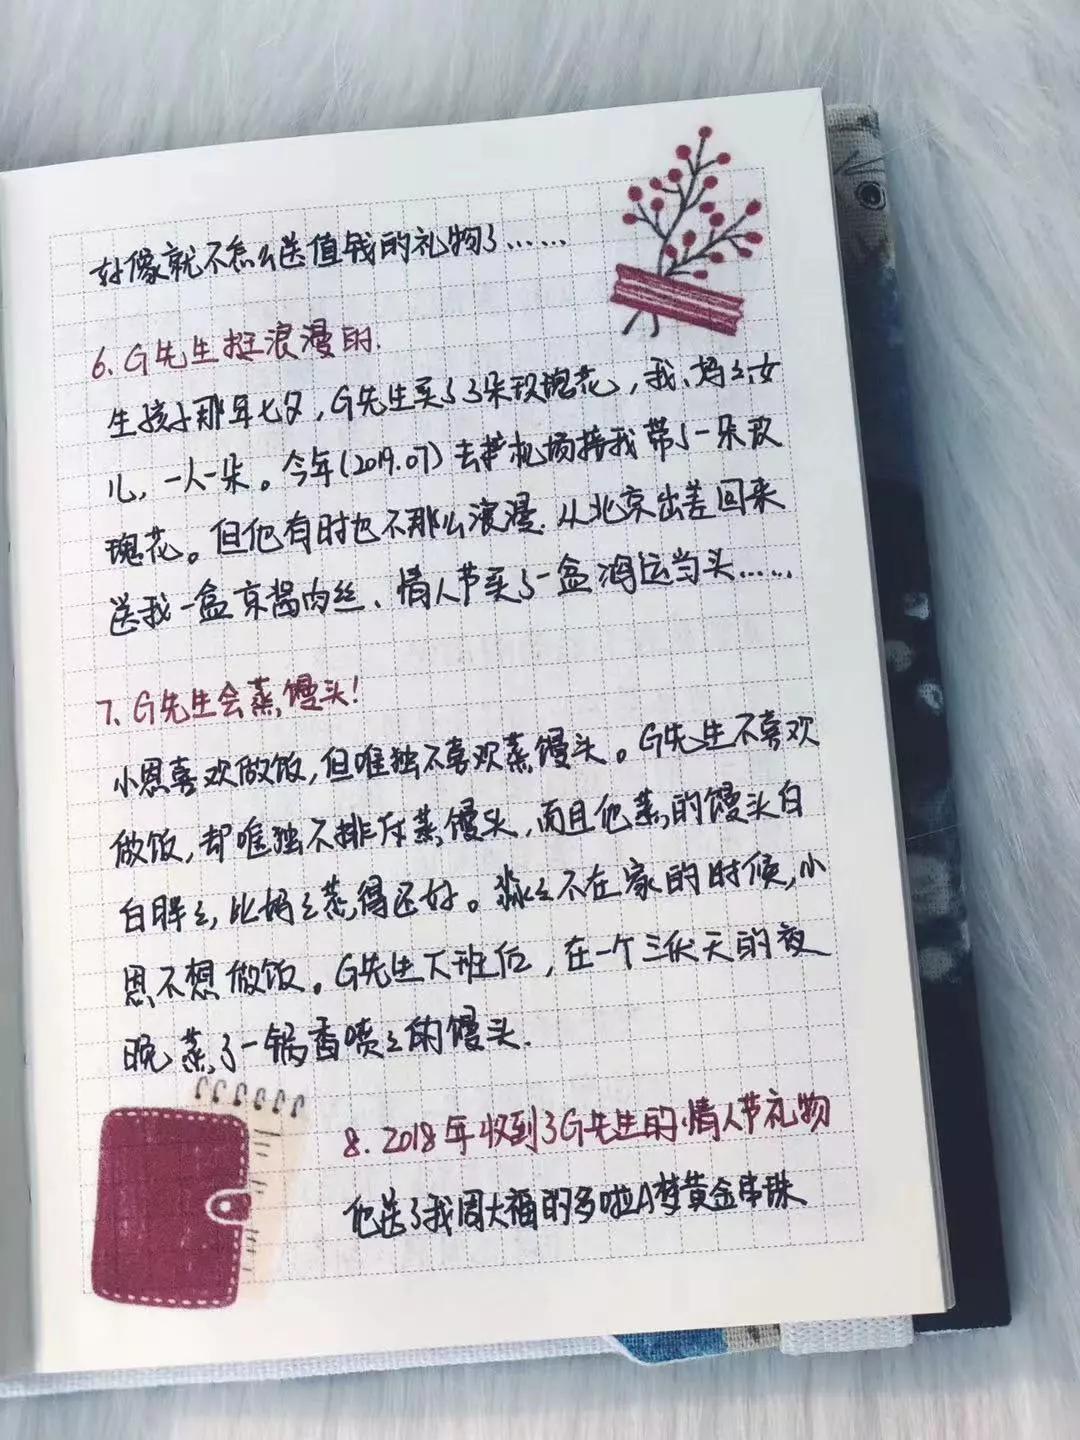 好像就不怎么送值钱的礼物了……
6、G先生挺浪漫的.
生孩子那年七夕，G先生买了3朵玫瑰花，我、妈么、女
儿，一人一朵。今年(2019.07)去机场接我带了一朵玫
瑰花。但他有时也不那么浪漫.从北京出差回来
送我一盒京酱肉丝、情人节买了一盒鸿运当头……
7、G先生会蒸馒头!
小恩喜欢做饭，但唯独不喜欢蒸馒头。G先生不喜欢
做饭，却唯独不排斥蒸馒头，而且他蒸的馒头白
白胖々，比妈々蒸得还好。淼々不在家的时候，小
恩不想做饭。G先生下班后，在一个三伏天的夜
晚蒸了一锅香喷々的馒头.
8、2018年收到了G先生的情人节礼物
他送了我周大福的多啦A梦黄金串珠